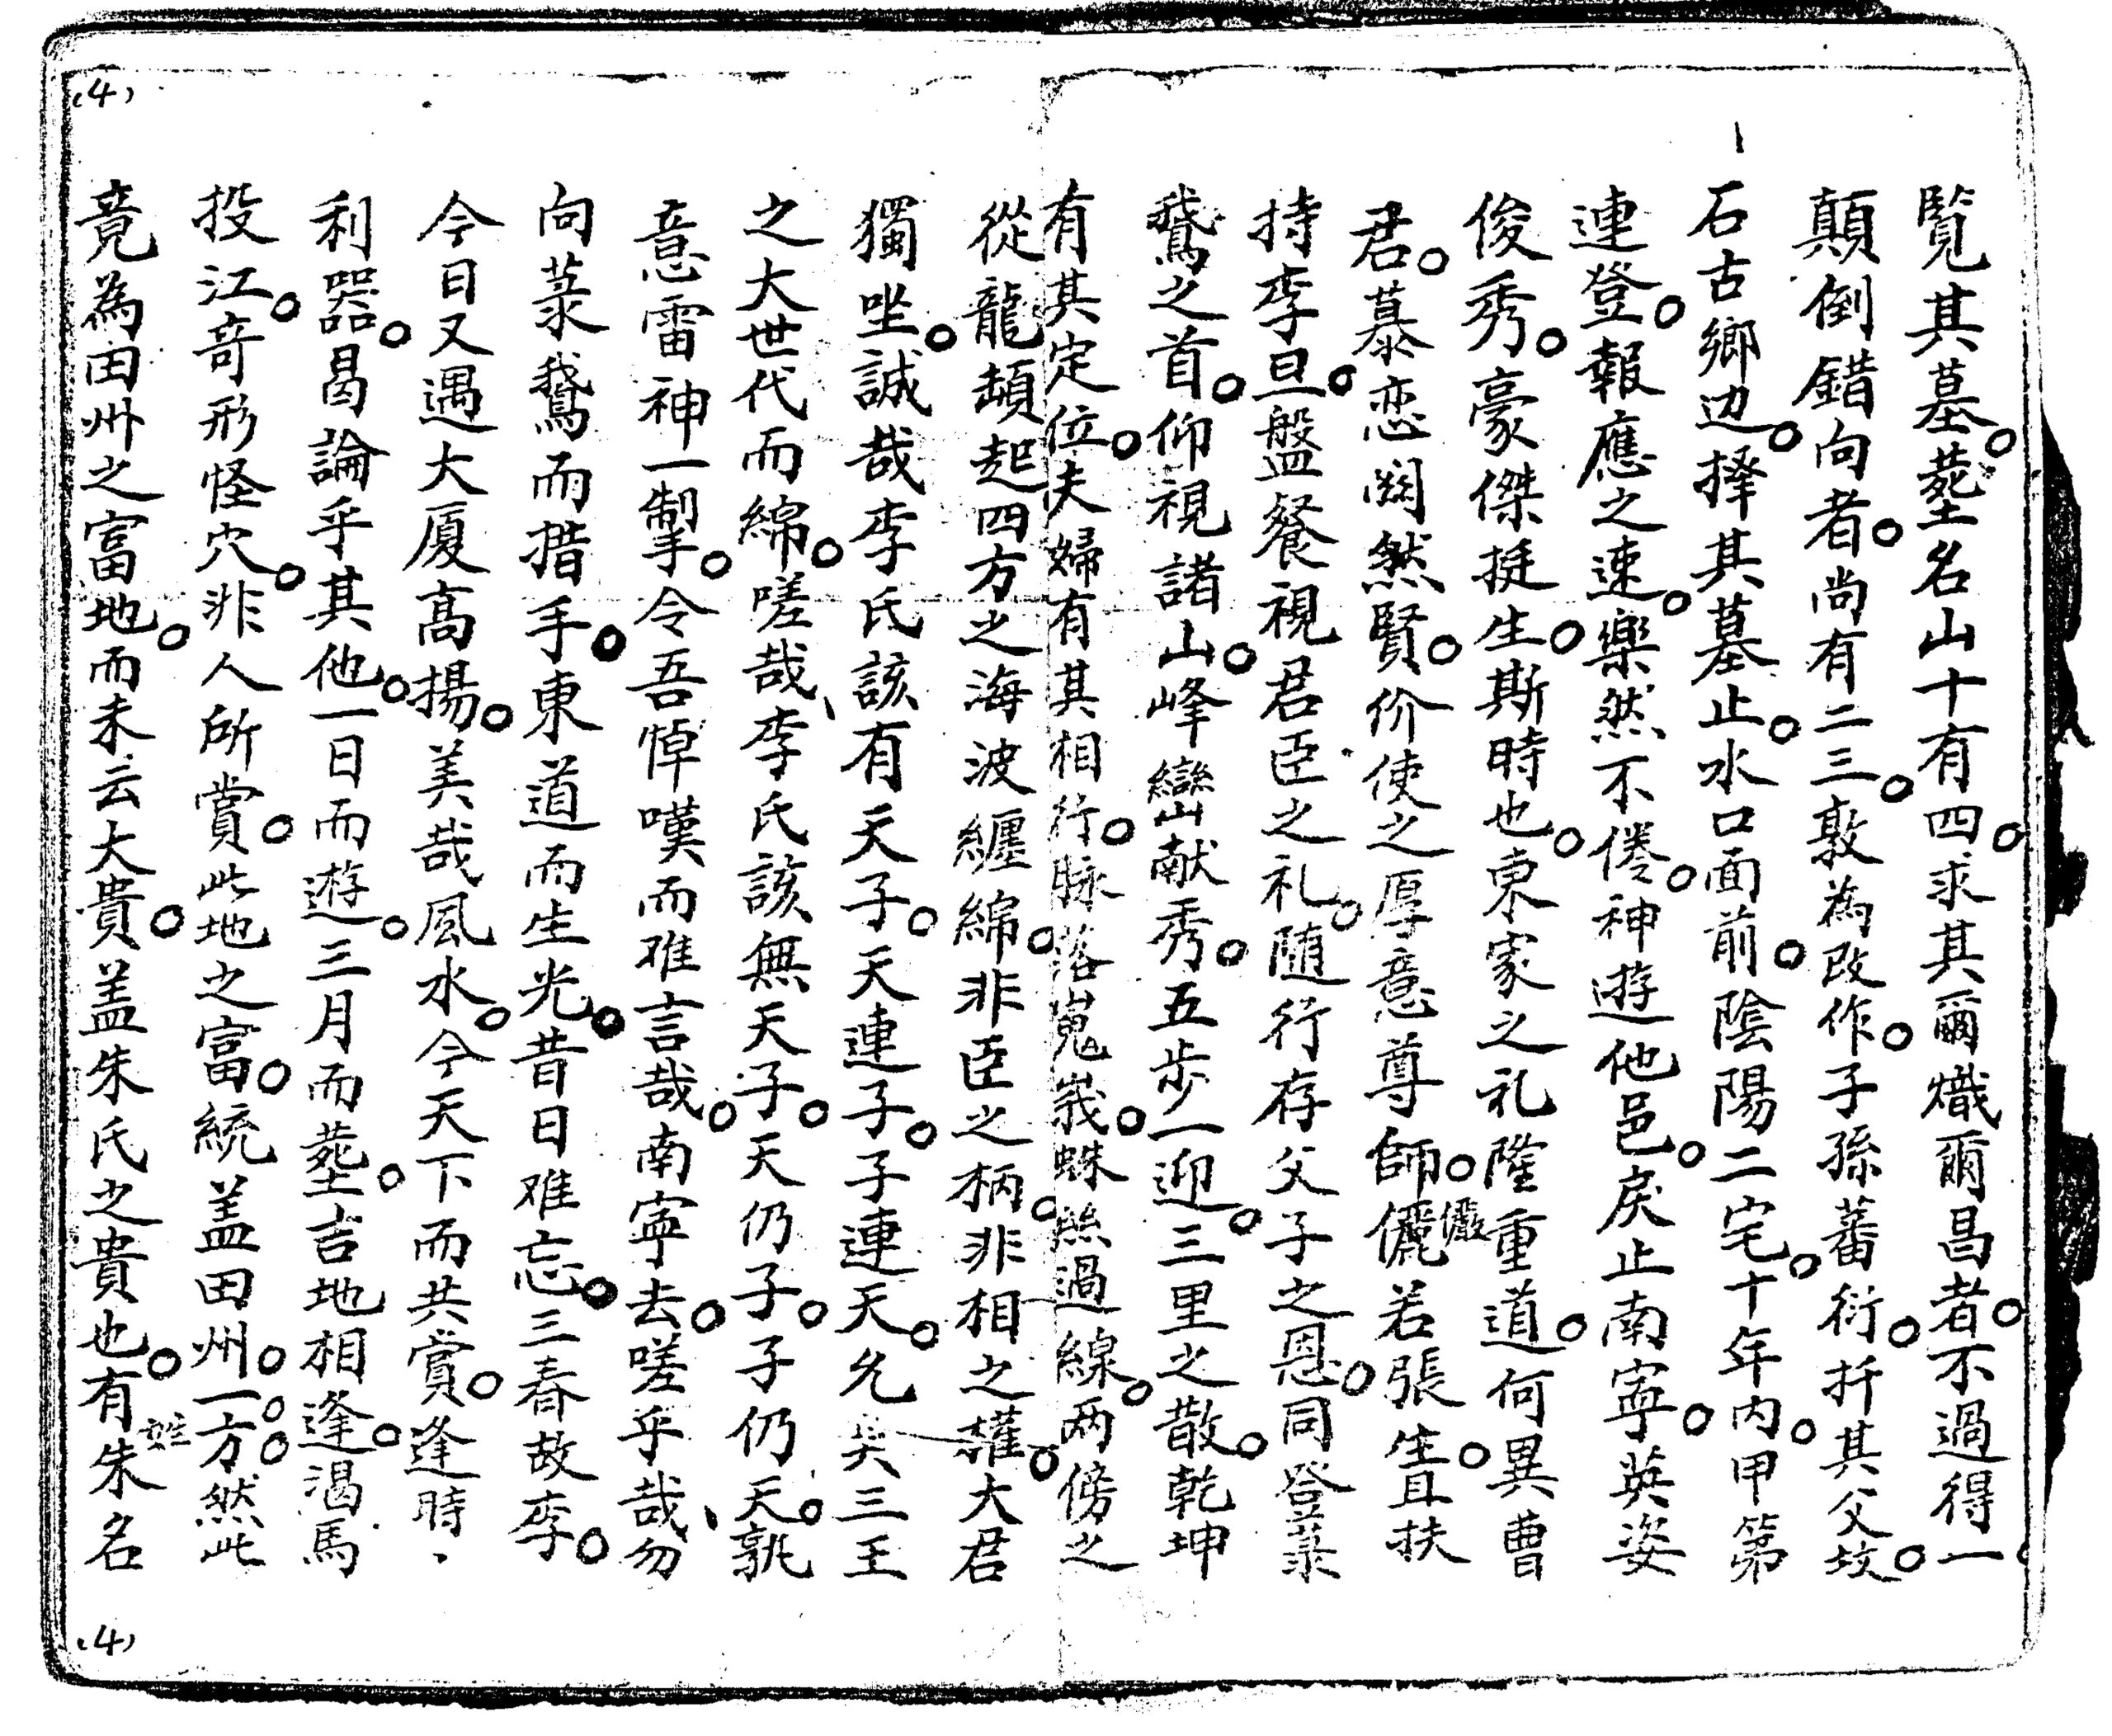 覧其墓。塟名山十有四。求其爾熾爾昌者。不過得一。
顛倒錯向者。尚有二三。敦為改作。子孫蕃衍。扦其父坟。
石古鄉边。擇其墓止。水口面前。陰陽二宅。十年內。甲第
連登。報應之速。樂然不倦。神遊他邑。戾止南寧。英姿
俊秀。豪傑挺生。斯時也。東家之礼。隆重道。何異曹
君。慕恋閎然賢。价使之厚意尊師。儼若張生。耳扶
持李旦。盤餐視君臣之礼。随行存父子之恩。同登菉
鵞之首。仰視諸山。峰巒献秀。五步一迎。三里之散。乾坤
有其定位。夫婦有其相行。脉落嵬峩。蛛絲過線。两傍之
從龍頏起四方之海波纒綿。非臣之柄。非相之權。大君
獨坐。誠哉李氏該有天子。天連子。子連天。允矣三王
之大世代而綿。嗟哉、李氏該無天子。天仍子。子仍天。孰
意雷神一掣。令吾悼嘆而难言哉。南寧去。嗟乎哉、勿
向菉鵞而措手。東道而生光。昔日难忘。三春故李。
今日又遇大厦高揚。美哉風水。今天下而共賞。逢時、
利器。曷論乎其他。一日而遊。三月而塟。吉地相逢。渴馬
投江。奇形怪穴。非人所賞。此地之富。統盖田州。一方。然此
竟為田州之富地。而未云大貴。盖朱氏之貴也。有朱姓名